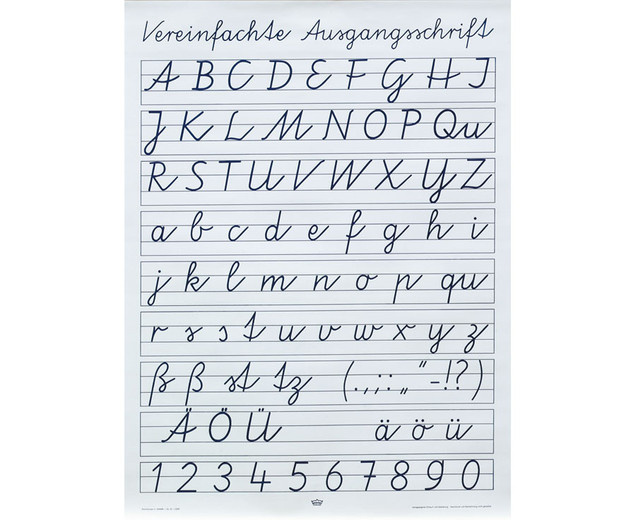 Vereinfachte Ausgangsschrift
A B C D E F G H I
J K L M N O P Qu
R S T U V W X Y Z
a b c d e f g h i
j k l m n o p qu
r s s t u v w x y z
ß ß st tz (.,;:„“-!?)
Ä Ö Ü ä ö ü
1 2 3 4 5 6 7 8 9 0